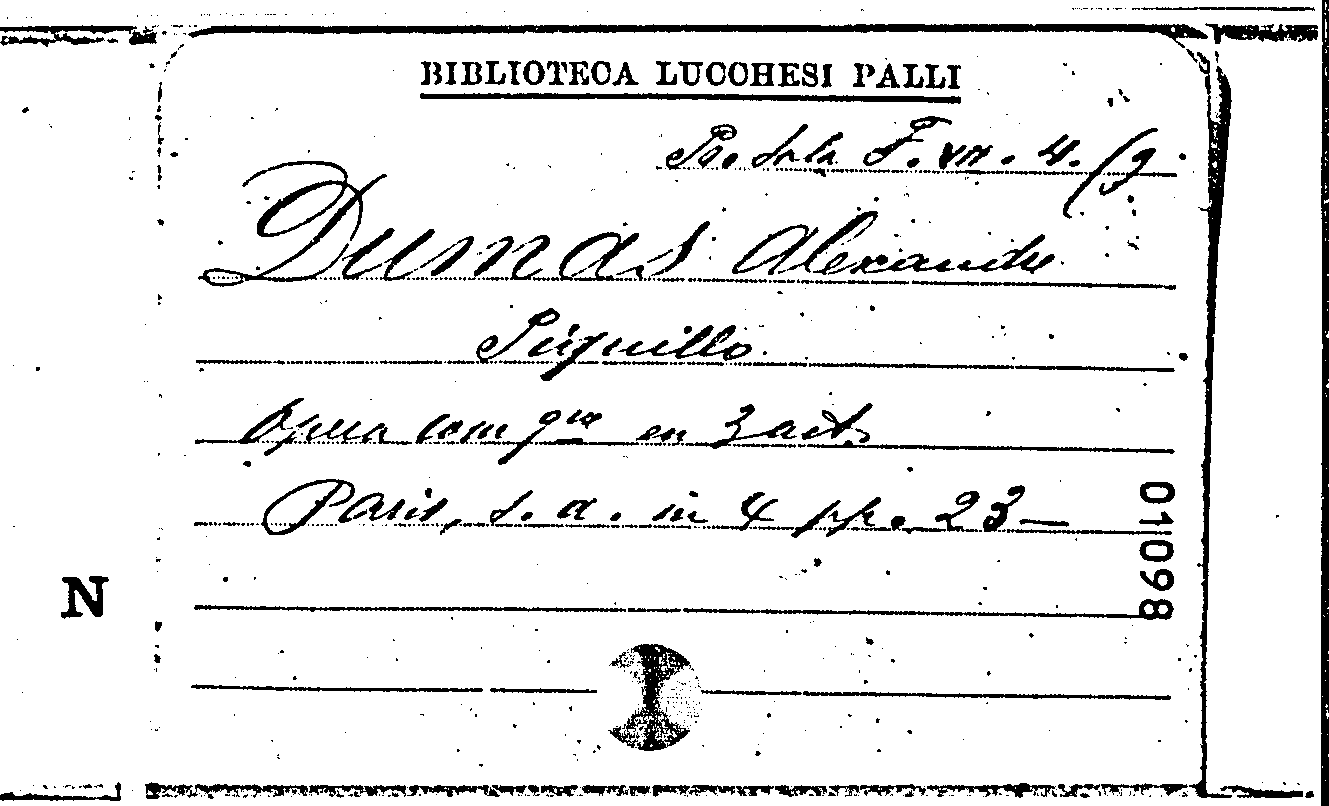 BIBLIOTECA LUCCHESI PALLI
Pa. Sala F. VII. 4. /9.
Dumas Alexandre
Piquillo
Opera com que en 3 acts
Paris, s. a. in 4 pp. 23 —
01098
N